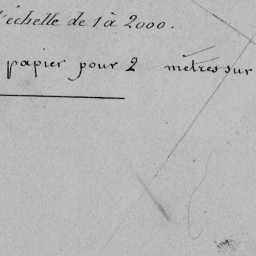 l'échelle de 1 à 2000.
papier pour 2 mètres sur